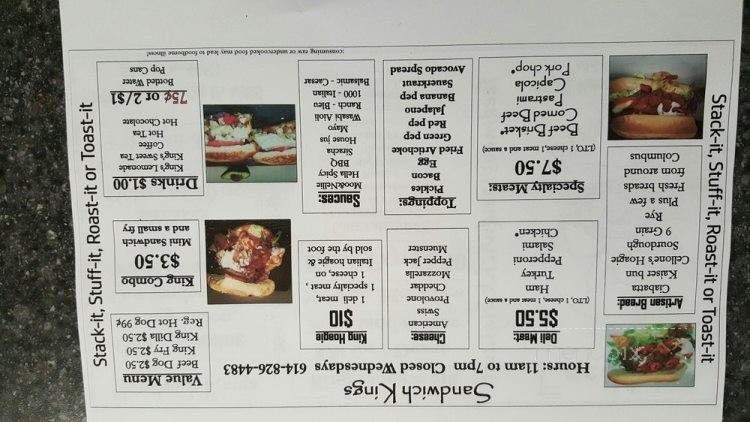 Sandwich Kings
Hours: 11am to 7pm Closed Wednesdays 614-826-4483
Stack-it, Stuff-it, Roast-it or Toast-it
Artisan Bread:
Ciabatta
Kaiser bun
Cellone's Hoagie
Sourdough
9 Grain
Rye
Plus a few
Fresh breads
from around
Columbus
Deli Meat:
$5.50
(LTO, 1 cheese, 1 meat and a sauce)
Ham
Turkey
Pepperoni
Salami
Chicken*
Specialty Meats:
$7.50
(LTO, 1 cheese, 1 meat and a sauce)
Beef Brisket*
Corned Beef
Pastrami
Capicola
Pork chop*
Cheese:
American
Swiss
Provolone
Cheddar
Mozzarella
Pepper Jack
Muenster
Toppings:
Pickles
Bacon
Egg
Fried Artichoke
Green pep
Red pep
Jalapeno
Banana pep
Sauerkraut
Avocado Spread
King Hoagie
$10
1 deli meat,
1 specialty meat,
1 cheese, on
Italian hoagie &
sold by the foot
Sauces:
Moo&Nellie
Hella Spicy
BBQ
Siracha
House jus
Mayo
Wasabi Aioli
Ranch - Bleu
1000 - Italian
Balsamic - Caesar
Value Menu
Beef Dog $2.50
King Fry $2.50
King Dilla $2.50
Reg. Hot Dog 99¢
King Combo
$3.50
Mini Sandwich
and a small fry
Drinks $1.00
King's Lemonade
King's Sweet Tea
Coffee
Hot Tea
Hot Chocolate
75¢ or 2/$1
Bottled Water
Pop Cans
Stack-it, Stuff-it, Roast-it or Toast-it
*consuming raw or undercooked food may lead to foodborne illness!